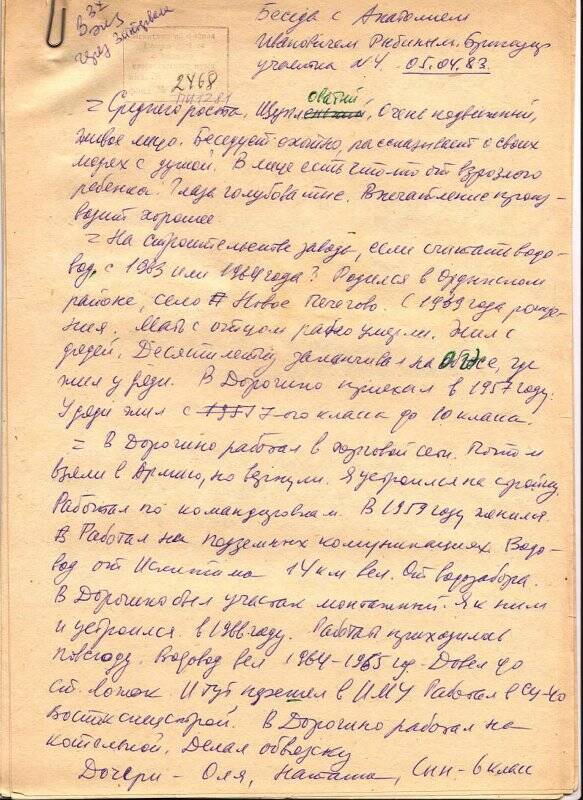 В 37
Беседа с Анатолием
Ивановичем Рябиным. Бригадир
участка N 4. 05.04.83.
2468
= Среднего роста, щупловатый, очень подвижный,
живое лицо. Беседует охотно, рассказывает о своих
с душой. В лице есть что-то от взрослого
ребенка. Глаза голубоватые. Впечатление произ-
водит хорошее
= На строительстве завода, если считать водо-
вод, с 1963 или 1964 года? Родился в Ордынском
районе, село Новое Пичугово. С 1939 года рожде-
ния. Мать с отцом рано умерли. Жил с
дядей. Десятилетку заканчивал на, где
жил у дяди. В Дорогино приехал в 1957 году.
У дяди жил с 7-ого класса до 10 класса.
= В Дорогино работал в торговой сети. Потом
взяли в Армию, но вернули. Я устроился на стройку.
Работал по командировкам. В 1959 году женился.
Работал на подземных комуникациях. Водо-
вод от Искитима 14 км вел. От водозабора.
В Дорогино был участок монтажный. Я к ним
и устроился. в 1966 году. Работать приходилось
повсюду. Водовод вел 1964-1965 гг. Довел до
ст. Ложок. И тут перешел в ИМУ Работал в СУ-40
Востокспецстрой. В Дорогино работал на
котельной. Делал обвязку
Дочери - Оля, Наташа, Сын - 6 класс